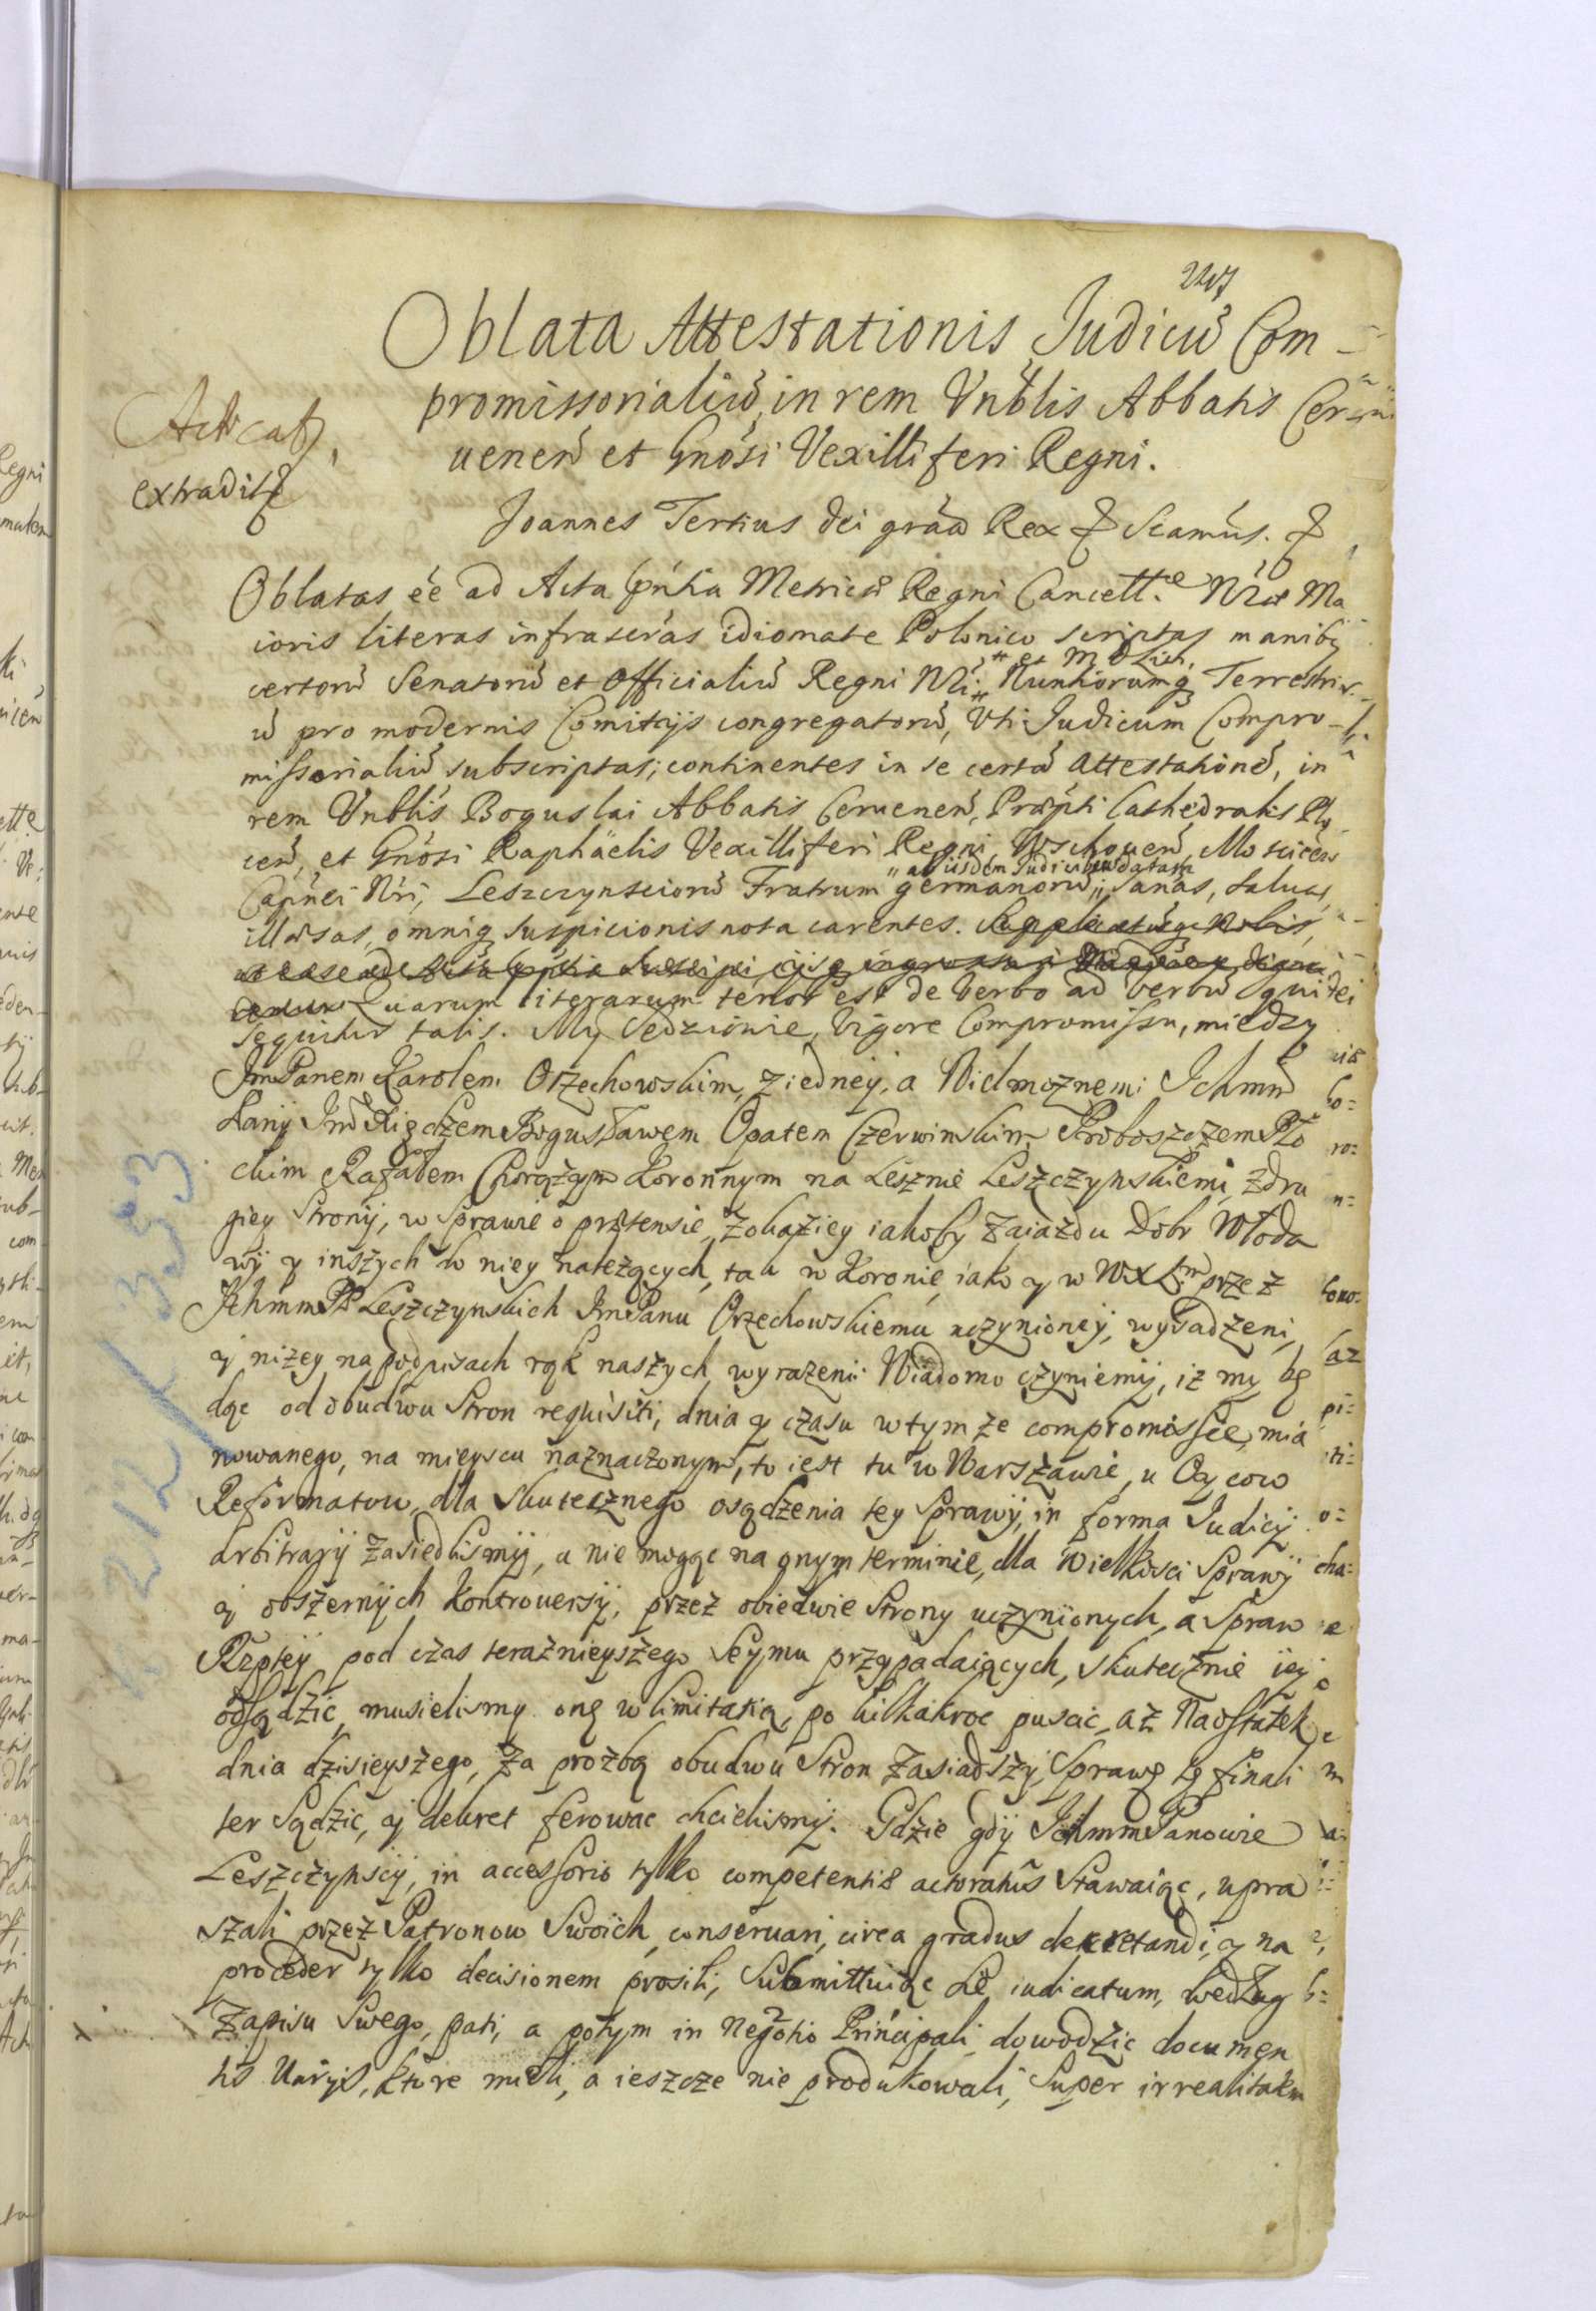 Oblata Attestationis Judicu͂ Com-
promissorialiu͂ in rem Vnblis Abbatis Cer
uenen͂ et Gnósi Vexilliferi Regni.
Acticat,
extradit
Joannes Tertius Dei gráa Rex & Scamús. &
Oblatas eé ad Acta pńtia Metrices Regni Cancell. Nrae Ma
ioris literas infrascrás idiomate Polonico scriptas manibq
certoru͂ Senatoru͂ et Officialiu͂ Regni Nri " et M D Lith. Nuntiorumq Terrestri
u͂ pro modernis Comitijs congregatoru͂, Vti Judicum Compro-
missorialiu͂ subscriptas, continentes in se certa͂ attestatione͂, in
rem Vnblis Boguslai Abbatis Cervenen͂, Praepti Cathedralis Plo
cen͂, et Gnósi Raphaëlis Vexilliferi Regni, Wschouen͂, Moscicen͂
Capnei Nri, Leszczynscioru͂ Fratrum germanoru͂ " ab iisdem Judicibus datam " sanas, saluas,
illaesas, omniq suspicionis nota carentes.
Quarum literarum tenor est de verbo ad verbu͂ qui
sequitur talis. My Sędziowie, Vigore Compromissu, między
JmPanem Karolem Orzechowskim, z iedney, a Wielmoznemi Ichmm
Panÿ Jm͂ Xiędzem Bogusławem Opatem Czerwinskim Proboszczem Pło
ckim Rafałem Chorązym Koronnym na Lesznie Leszczynskiemi, z dru
giey Stronÿ, w Sprawie o praetensie, z okaziey iakoby Zaiazdu Dobr Włoda
wÿ y inszych do niey nalezących, tak w Koronie, iako y w WXLm przez
JchmmPP Leszczynskich JmPanu Orzechowskiemu uczynioney, wysadzeni,
y nizey na podpisach rąk naszych wyrazeni. Wiadomo czyniemÿ, iz my bę
dąc od obudwu Stron requisiti, dnia y czasu w tym ze compromissie, mia
nowanego, na mieyscu naznaczonym, to iest tu w Warszawie, u Oycow
Reformatow, dla skutecznego osądzenia tey Sprawÿ, in forma Judicij
arbitrarÿ zasiedlismÿ, a nie mogąc na onym terminie, dla wielkosci Sprawÿ
y obszernÿch kontrouersÿ, przez obiedwie Strony uczynionych, a Spraw
Rzptey pod czas teraznieyszego Seymu przypadaiących, skutecznie iey
osądzic, musielismy onę w limitatią, po kilkakroc puscic, az Naostatek
dnia dzisieyszego, za prozbą obudwu Stron Zasiadszÿ, Sprawę tę finali
ter Sądzic, y dekret ferowac chcielismÿ. Gdzie gdÿ JchmmPanowie
Leszczynscÿ, in accessorio tylko competentis actoratus Stawaiąc, upra
szali przez Patronow Swoich, conseruari, circa gradus decretandi, y na
proceder tylko decisionem prosili, Submittuiąc se iudicatum, według
Zapisu Swego, pati, a potym in Negotio Principali, dowodzic documen
tis Uarijs, ktore mieli, a ieszcze nie produkowali, Super irrealitatem